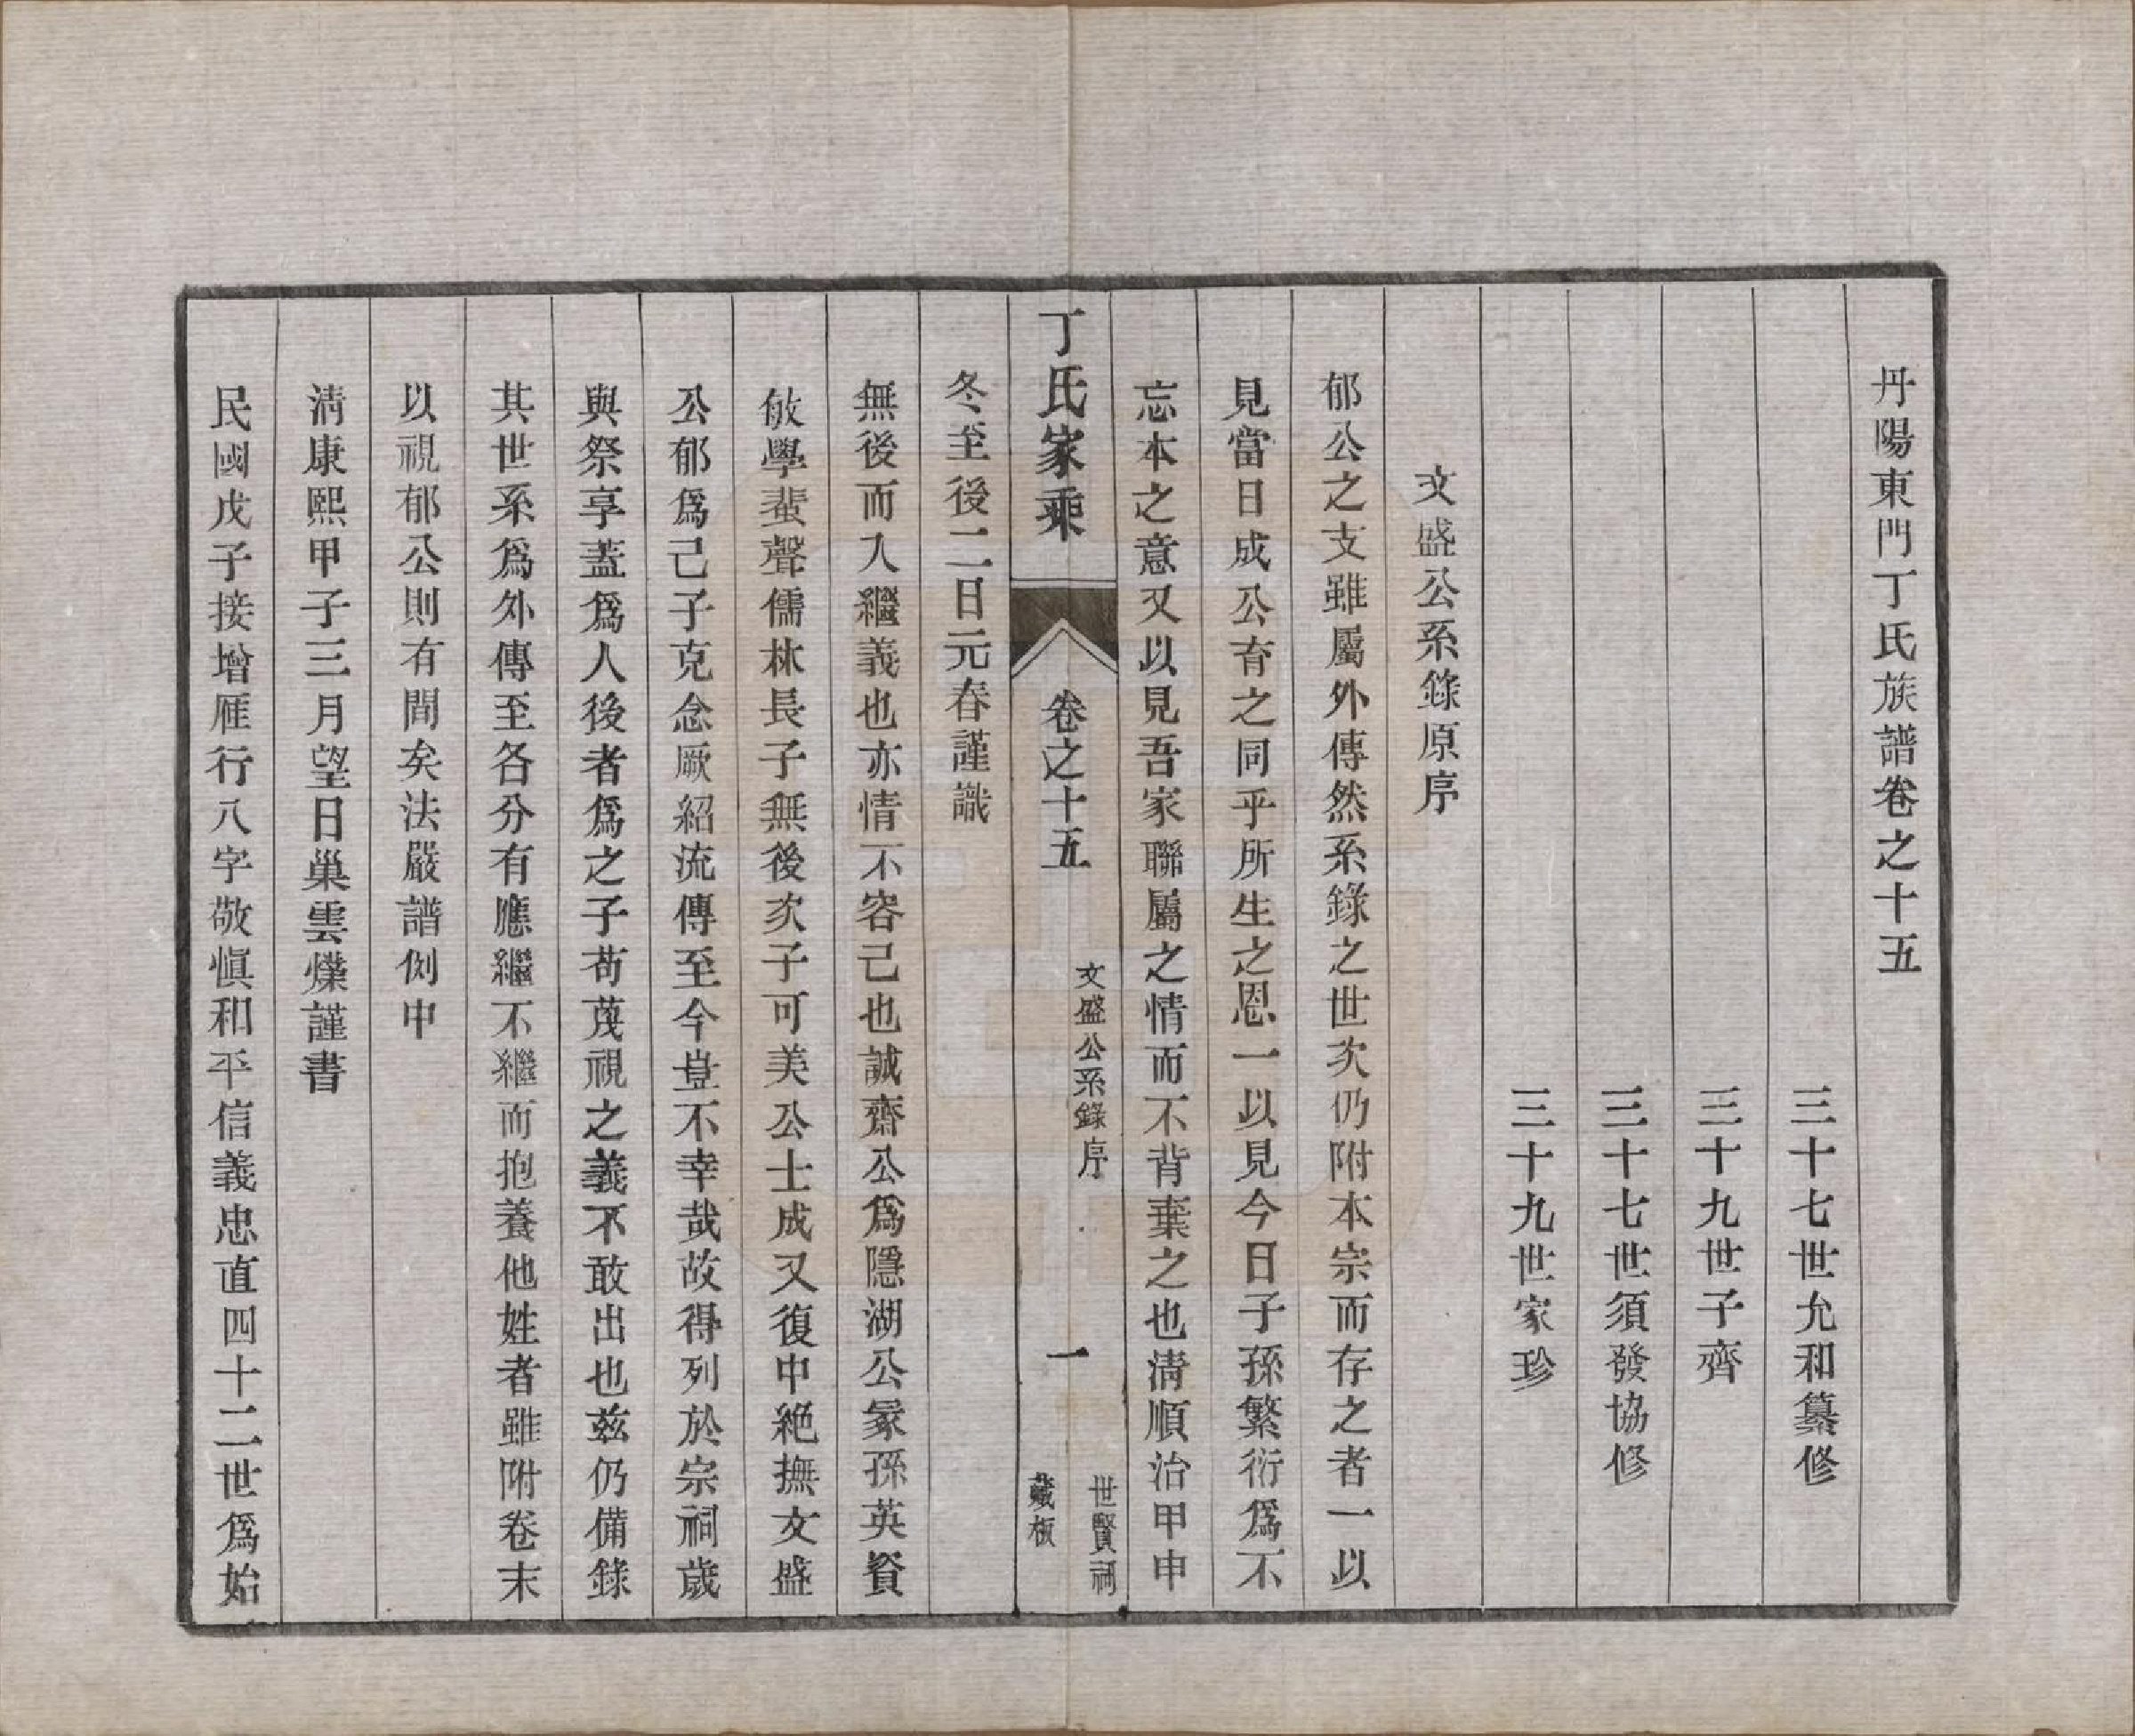 丹陽東門丁氏族譜卷之十五
三十七世允和纂修
三十九世子齊
三十七世須發協修
三十九世家珍
文盛公系錄原序
郁公之支雖屬外傳然系錄之世次仍附本宗而存之者一以
見當日成公育之同乎所生之恩一以見今日子孫繁衍爲不
忘本之意又以見吾家聯屬之情而不背棄之也清順治甲申
丁氏家乘
卷之十五
文盛公系錄序
一
世賢祠
藏板
冬至後二日元春謹識
無後而入繼義也亦情不容已也誠齋公爲隱湖公冡孫英資
敏學蜚聲儒林長子無後次子可美公士成又復中絶撫文盛
公郁爲己子克念厥紹流傳至今豈不幸哉故得列於宗祠歲
與祭享蓋爲人後者爲之子苟蔑視之義不敢出也兹仍備錄
其世系爲外傳至各分有應繼不繼而抱養他姓者雖附卷末
以視郁公則有間矣法嚴譜例中
清康熙甲子三月望日巢雲爍謹書
民國戊子接增雁行八字敬慎和平信義忠直四十二世爲始